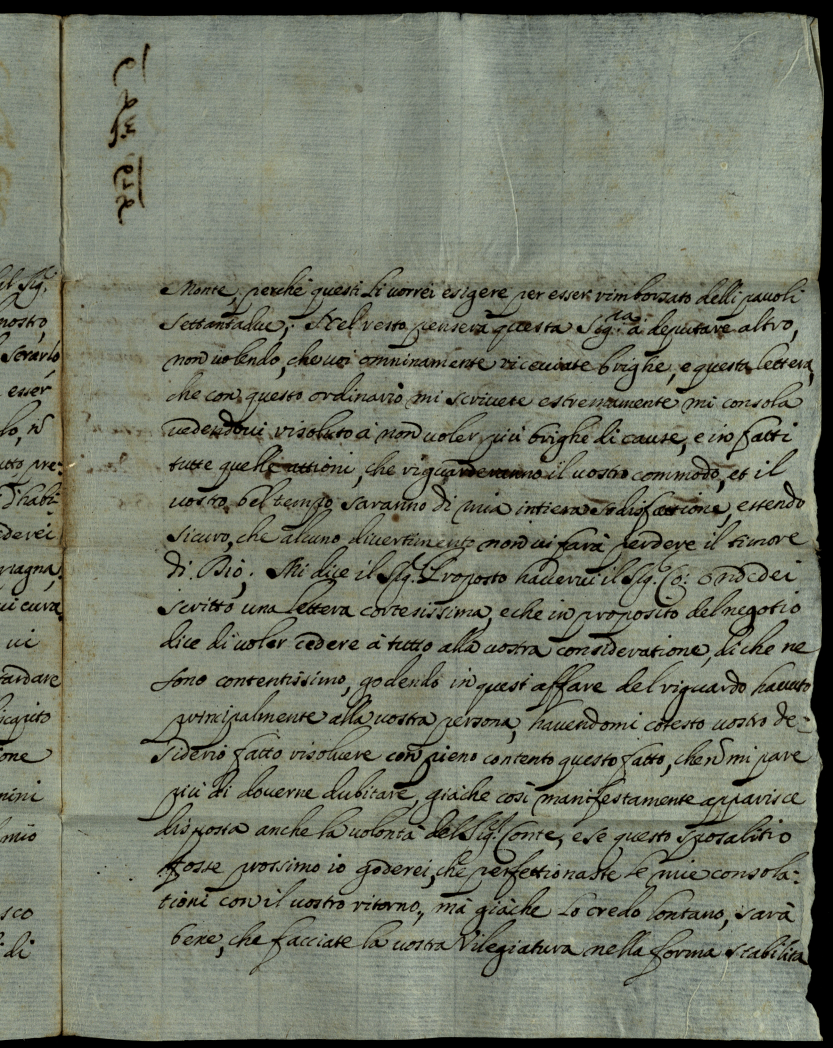 Monte, perche questi li vorrei esigere per esser rimborzato delli pavoli
settantadue; Nel resto penserà questa Sig:ria à deputare altro,
non volendo, che voi omninamente riceviate brighe, e questa lettera,
che con questo ordinario mi scrivete estremamente mi consola
vedendovi risoluto à non voler più brighe di cause, e in fatti
tutte quelle attioni, che riguarderanno il vostro commodo, et il
vostro bel tempo saranno di mia intiera sodisfattione, essendo
sicuro, che alcuno divertimento non vi farà perdere il timore
di Dio. Mi dice il Sig.r Proposto havervi il Sig.r Co:
scritto una lettera cortesissima, e che in proposito del negotio
dice di voler cedere à tutto alla vostra consideratione, di che ne
sono contentissimo, godendo in quest affare del riguardo havuto
principalmente alla vostra persona, havendomi cotesto vostro de=
siderio fatto risolvere con pieno contento questo fatto, che ñ mi pare
più di doverne dubitare, giache così manifestamente apparisce
disposta anche la volontà del Sig.r Conte, e se questo sposalitio
fosse prossimo io goderei, che perfettionaste le mie consola=
tioni con il vostro ritorno, mà giache lo credo lontano, sarà
bene, che facciate la vostra Vilegiatura nella forma stabilita
il Sig.
nostro,
esser
lo, ñ
utto pre=
d'habi=
ederei
vi cura
vi
tardare
ione
mini
mio
sco
di